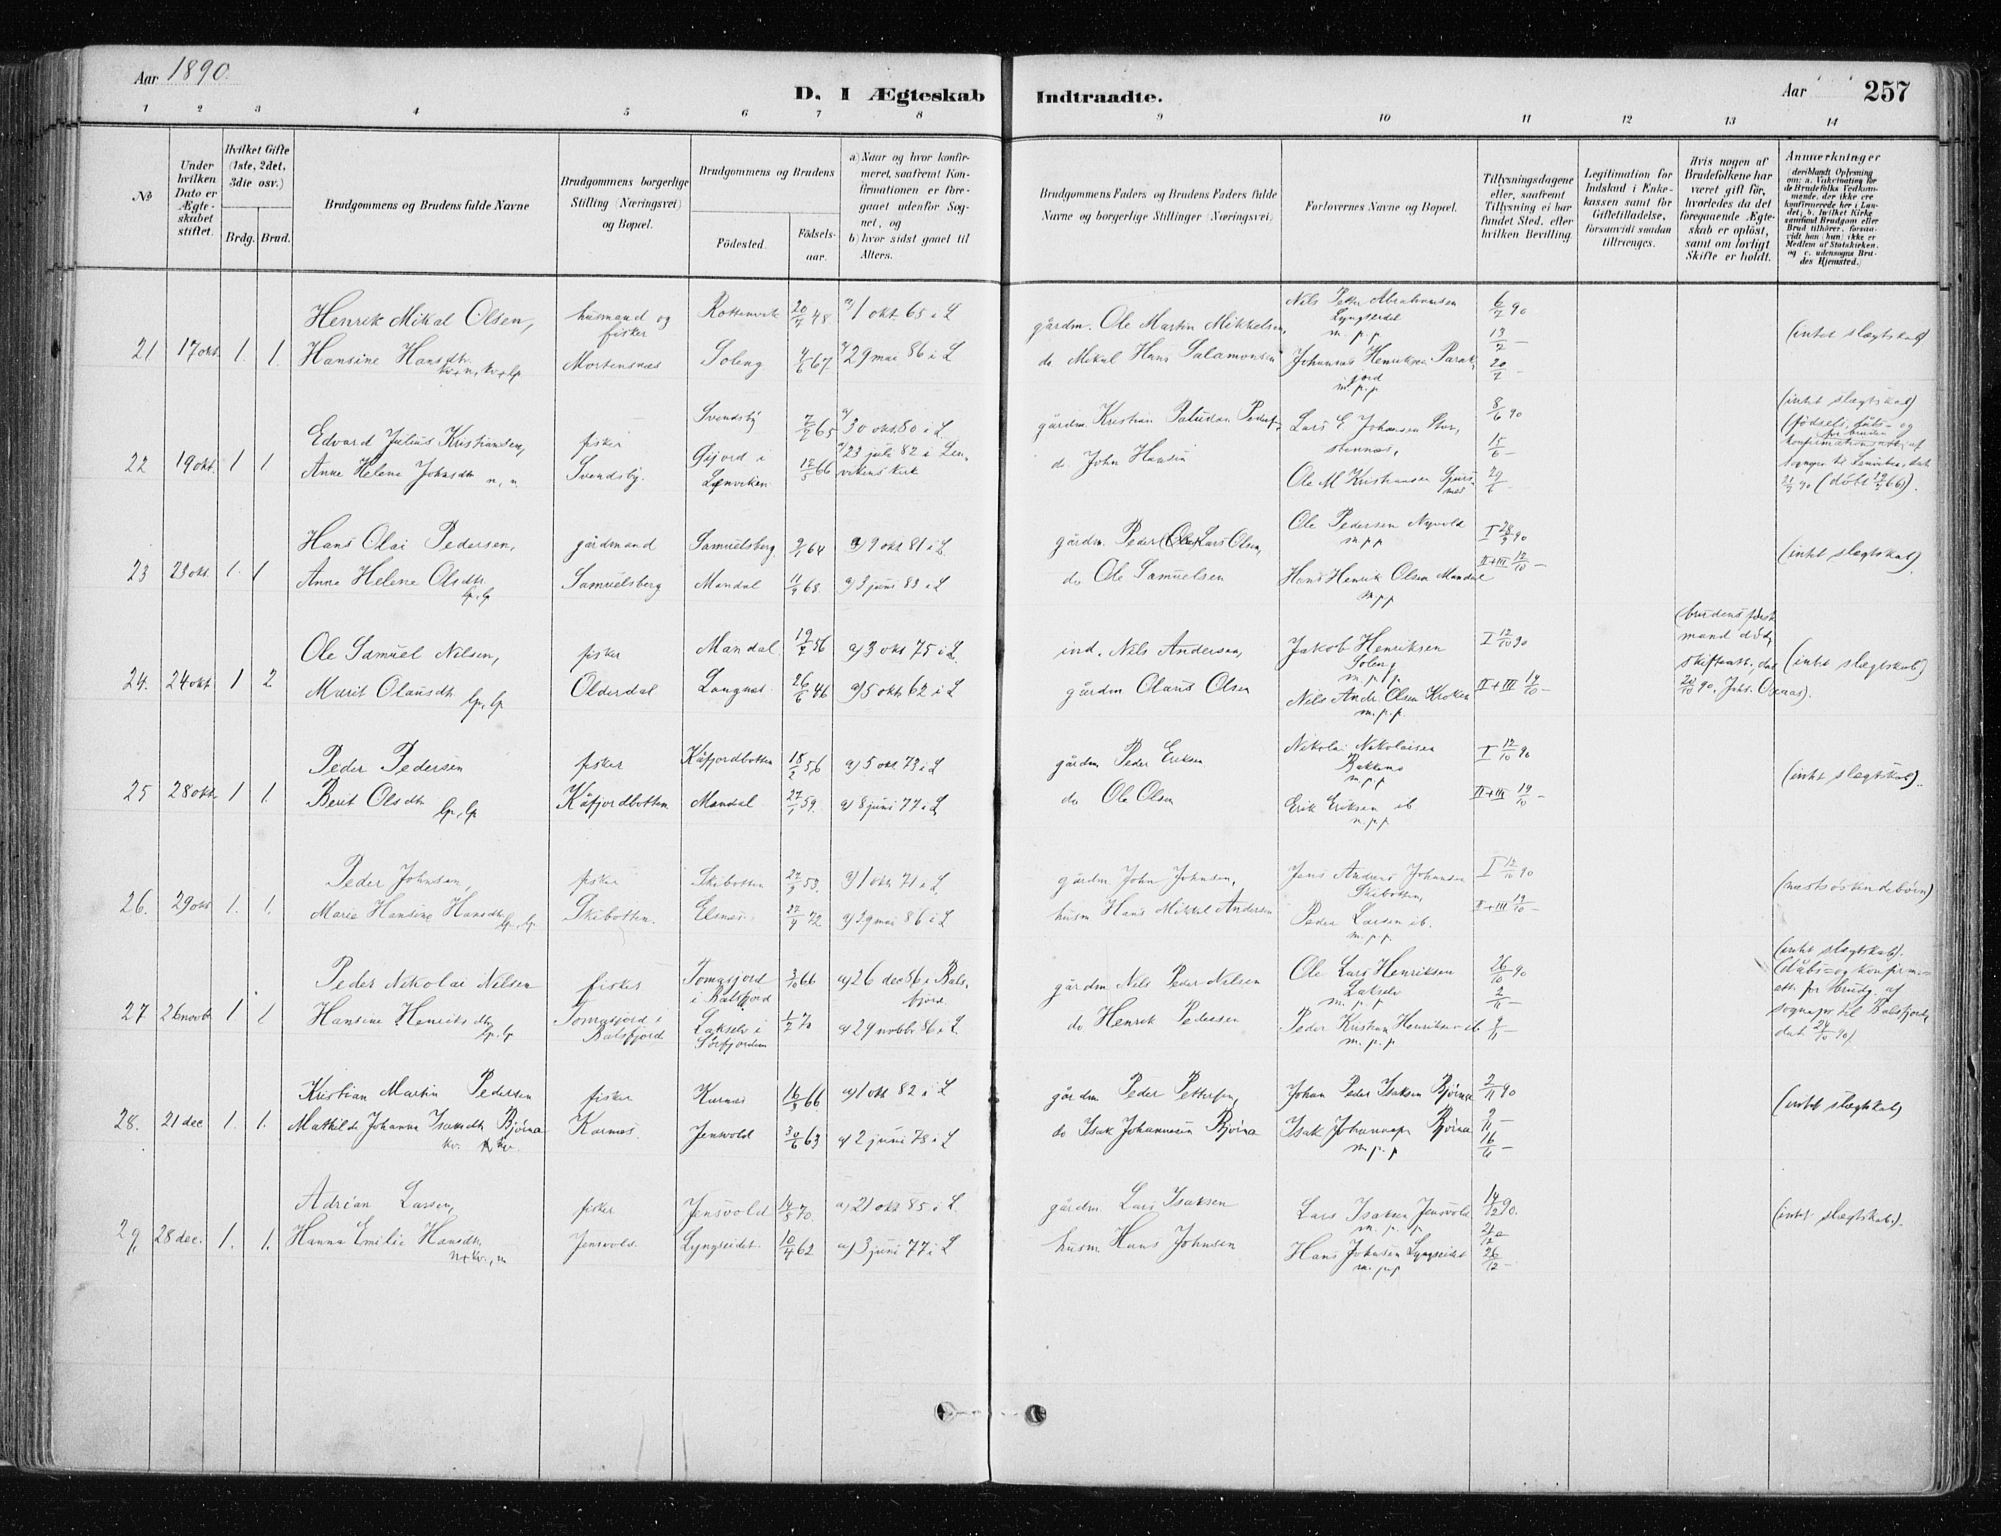 Aar 1890.
D. I Ægteskab Indtraadte.
Aar 257
1 2 3 4 5 6 7 8 9 10 11 12 13 14
№
Under hvilken Dato er Ægteskabet stiftet.
Hvilket Gifte (1ste, 2det, 3die osv.)
Brdg. Brud.
Brudgommens og Brudens fulde Navne
Brudgommens borgerlige Stilling (Næringsvei) og Bopæl.
Brudgommens og Brudens
Födested.
Födselsaar.
a) Naar og hvor konfirmeret, saafremt Konfirmationen er foregaaet udenfor Sognet, og
b) hvor sidst gaaet til Alters.
Brudgommens Faders og Brudens Faders fulde Navne og borgerlige Stillinger (Næringsvei)
Forlovernes Navne og Bopæl.
Tillysningsdagene eller, saafremt Tillysning ei har fundet Sted, efter hvilken Bevilling
Legitimation for Indskud i Enkekassen samt for Giftetilladelse, forsaavidt saadan tiltrænges.
Hvis nogen af Brudefolkene har været gift før, hvorledes da det foregaaende Ægteskab er opløst, samt om lovligt Skifte er holdt.
Anmærkninger
21 17 okt. 1. 1.
Henrik Mikal Olsen, husmand og fisker Rottenvik 20/7 48 a) 1 okt 65 i L
gårdm. Ole Martin Mikkelsen, Nils Peder Abrahamsen Lyngseidet m.p.p 6/7 90
Hansine Hansdtr. Mortensnes Soleng 4/6 67 29 mai 86 i L
do Mikal Hans Salamonsen Johannes Henriksen m.p.p 13/7 – 20/7 –
(intet slægtskab)
22 19 okt. 1 1
Edvard Julius Kristiansen, fisker Svendsby 7/7 65 a) 30 okt. 80 i L.
gårdm. Kristian Paludan Peders., Lars E Johansen Storstennes, 8/6 90
Anne Helene Johnsdtr n, n Svendsby. Gijord i Lenviken 15/5 66 23 juli 82 i Lenvikens kirk
do John Hansen Ole M Kristiansen 15/6 – 29/6 –
(intet slægtskab)
(fødsels, dåbs- og konfirmationsatt. for bruden af sognepr. til Lenviken, dat
23 23 okt. 1. 1
Hans Olai Pedersen, gårdmand Samuelsberg 9/1 64 a) 9 okt 81 i L
gårdm. Peder Lars Olsen, Ole Pedersen Nyvold m.p.p I 28/9 90
Anne Helene Olsdtr. lp, lp Samuelsberg Mandal 11/9 68. a) 3 juni 83 i L
do Ole Samuelsen Hans Henrik Olsen Mandal m.p.p II+III 12/10 –
(intet slægtskab).
24. 24 okt 1 2
Ole Samuel Nilsen, fisker Mandal 19/7 56 a) 3 okt 75 i L.
ind. Nils Andersen, Jakob Henriksen Soleng m.p.p I 12/10 90
Marit Olausdtr lp, lp Olderdal Langnes 26/6 46 a) 5 okt 62 i L
gårdm Olaus Olsen Nils Andr. Olsen Kroken m.p.p. II+III 19/10 –
(brudens første mand død, skifteatt. dat 20/10 90. Joh. Oxaas).
(intet slægtskab)
25 28 okt. 1 1.
Peder Pedersen fisker Kåfjordbotten 18/2 56 a) 5 okt. 73 i L
gårdm Peder Eriksen Nikolai Nikolaisen Bakkene m.p.p I 12/10 90
Berit Olsdtr lp, lp Kåfjordbotten Mandal 27/1 59. a) 8 juni 77 i L
do Ole Olsen Erik Eriksen ib m.p.p II+III 19/10
(intet slægtskab)
26. 29 okt 1. 1.
Peder Johnsen, fisker Skibotten 27/9 53. a) 1 okt. 71 i L
gårdm. John Johnsen, Jens Andreas Johansen Skibotten, I 12/10 90
Marie Hansine Hansdtr lp, lp Skibotten. Elsnes 27/4 72 a) 29 mai 86 i L
husm Hans Mikkel Andersen Peder Larsen ib. m.p.p. II+III 19/10 –
(næstsøskindebørn)
27 26 novbr 1 1
Peder Nikolai Nilsen fisker Tomasjord i Balsfjord 3/10 66 a) 26 dec 86 i Balsfjord
gårdm Nils Peder Nilsen Ole Lars Henriksen Lakselv m.p.p 26/10 90
Hansine Henriksdtr lp, lp Tomasjord i Balsfjord Lakselv i Sørfjorden 1/2 70 a) 29 novbr 86 i L
do Henrik Pedersen Peder Kristian Henriksen ib m.p.p 2/11 – 9/11 –
(intet slægtskab).
(dåbs- og konfirm.att. for brudg. af sognepr til Balsfjord, dat 24/10 90).
28. 21 dec 1. 1.
Kristian Martin Pedersen fisker Karnes 16/3 66 a) 1 okt 82 i L
gårdm. Peder Pettersen, Johan Peder Isaksen Bjørnes 2/11 90
Mathilde Johanna Isaksdtr Bjørnes Karnes. Jensvold 30/6 63 a) 2 juni 78 i L
do Isak Johannesen Bjørnes Isak Johannesen Bjørnes m.p.p 9/11 – 16/11 –
(intet slægtskab)
29. 28 dec. 1. 1.
Adrian Larsen, fisker Jensvold 14/5 70. a) 21 okt 85 i L.
gårdm. Lars Isaksen Lars Isaksen Jensvold m.p.p 14/12 90.
Hanna Emilie Hansdtr n+kv., n Jensvold Lyngseidet 10/4 62 a) 3 juni 77 i L
husm Hans Johnsen Hans Johnsen Lyngseidet m.p.p 21/12 26/12 –
(intet slægtskab).